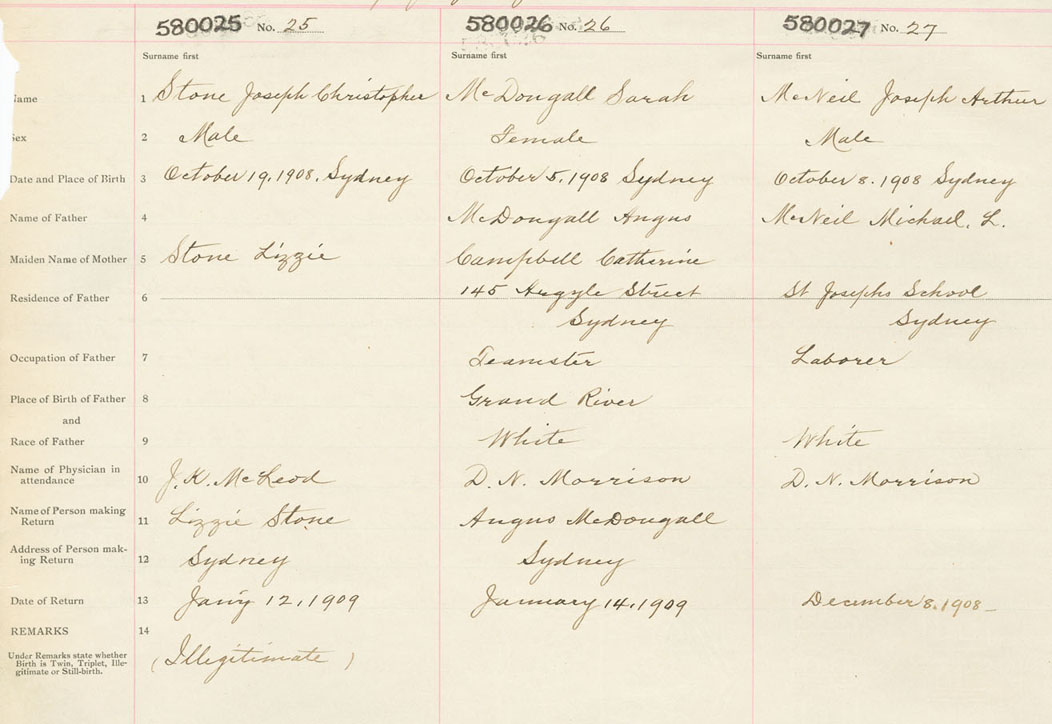 580025 No. 25 580026 No. 26 580027 No. 27
Surname first Surname first Surname first
Name 1 Stone Joseph Christopher McDougall Sarah McNeil Joseph Arthur
Sex 2 Male Female Male
Date and Place of Birth 3 October 19, 1908. Sydney October 5, 1908 Sydney October 8. 1908 Sydney
Name of Father 4 McDougall Angus McNeil Michael. L.
Maiden Name of Mother 5 Stone Lizzie Campbell Catherine
Residence of Father 6 145 Argyle Street St Josephs School
Sydney Sydney
Occupation of Father 7 Teamster Laborer
Place of Birth of Father 8 Grand River
and
Race of Father 9 White White
Name of Physician in
attendance 10 J. K. McLeod D. N. Morrison D. N. Morrison
Name of Person making
Return 11 Lizzie Stone Angus McDougall
Address of Person mak-
ing Return 12 Sydney Sydney
Date of Return 13 Jan'y 12, 1909 January 14, 1909 December 8. 1908 -
REMARKS 14
Under Remarks state whether
Birth is Twin, Triplet, Ille-
gitimate or Still-birth.
(Illegitimate)